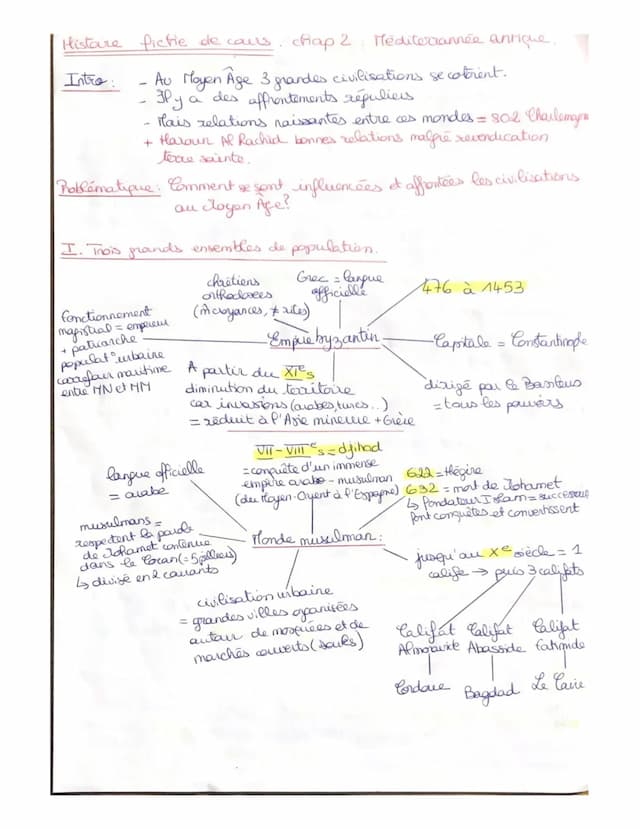 Histoire fiche de cours. chap 2 Méditerrannée antique.
Intro: - Au Moyen Âge 3 grandes civilisations se cotoient.
- Il y a des affrontements réguliers
- Mais relations naissantes entre ces mondes = 802 Charlemagne
+ Haroun Al Rachid bonnes relations malgré revendication
terre sainte.
Problématique: Comment se sont influencées et affontées les civilisations
au Moyen Âge?
I. Trois grands ensembles de population.
chrétiens
orthodoxes
(m̂ croyances, ≠ rites)
Grec = langue
officielle
476 à 1453
Fonctionnement
magistral = empereur
+ patriarche
populat° urbaine
carrefour maritime
entre MN et MM
Empire byzantin
Capitale = Constantinople
A partir du XIe s
diminution du territoire
car invasions (arabes, turcs...)
= réduit à l'Asie mineure + Grèce
dirigé par le Basileus
= tous les pouvoirs
VII - VIIIe s = djihad
= conquête d'un immense
empire arabo-musulman
(du Moyen-Orient à l'Espagne)
langue officielle
= arabe
622 = Hégire
632 = mort de Mohamet
↳ fondateur Islam = successeurs
font conquêtes et convertissent
musulmans =
respectent la parole
de Mohamet contenue
dans le Coran (= 5 piliers)
↳ divisé en 2 courants
Monde musulman:
jusqu'au Xe siècle = 1
calife → puis 3 califats
civilisation urbaine
= grandes villes organisées
autour de mosquées et de
marchés couverts (souks)
Califat Califat Califat
Almoravite Abasside Fatimide
Cordoue Bagdad Le Caire